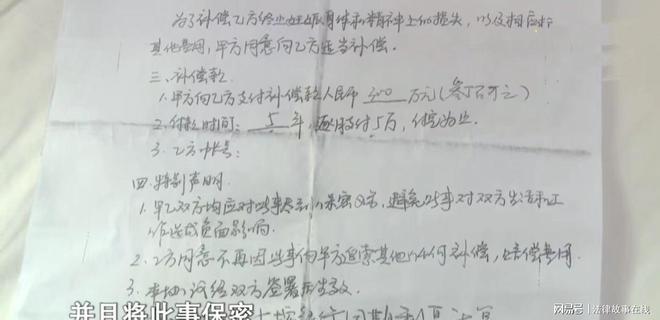 为了补偿乙方终止妊娠身体和精神上的损失，以及相应的
其他费用，甲方同意向乙方适当补偿。
三、补偿款
1.甲方向乙方支付补偿款人民币 300 万元（叁百万元）
2.付款时间： 5 年，逐月支付5万，付完为止。
3.乙方卡号：
四.特别声明.
1.甲乙双方均应对此事尽到保密义务，避免此事对双方生活和工
作造成负面影响.
2.乙方同意不再因此事向甲方追索其他任何补偿，赔偿费用.
3.本协议经双方签署后生效.
并且将此事保密
网易号 | 法律故事在线